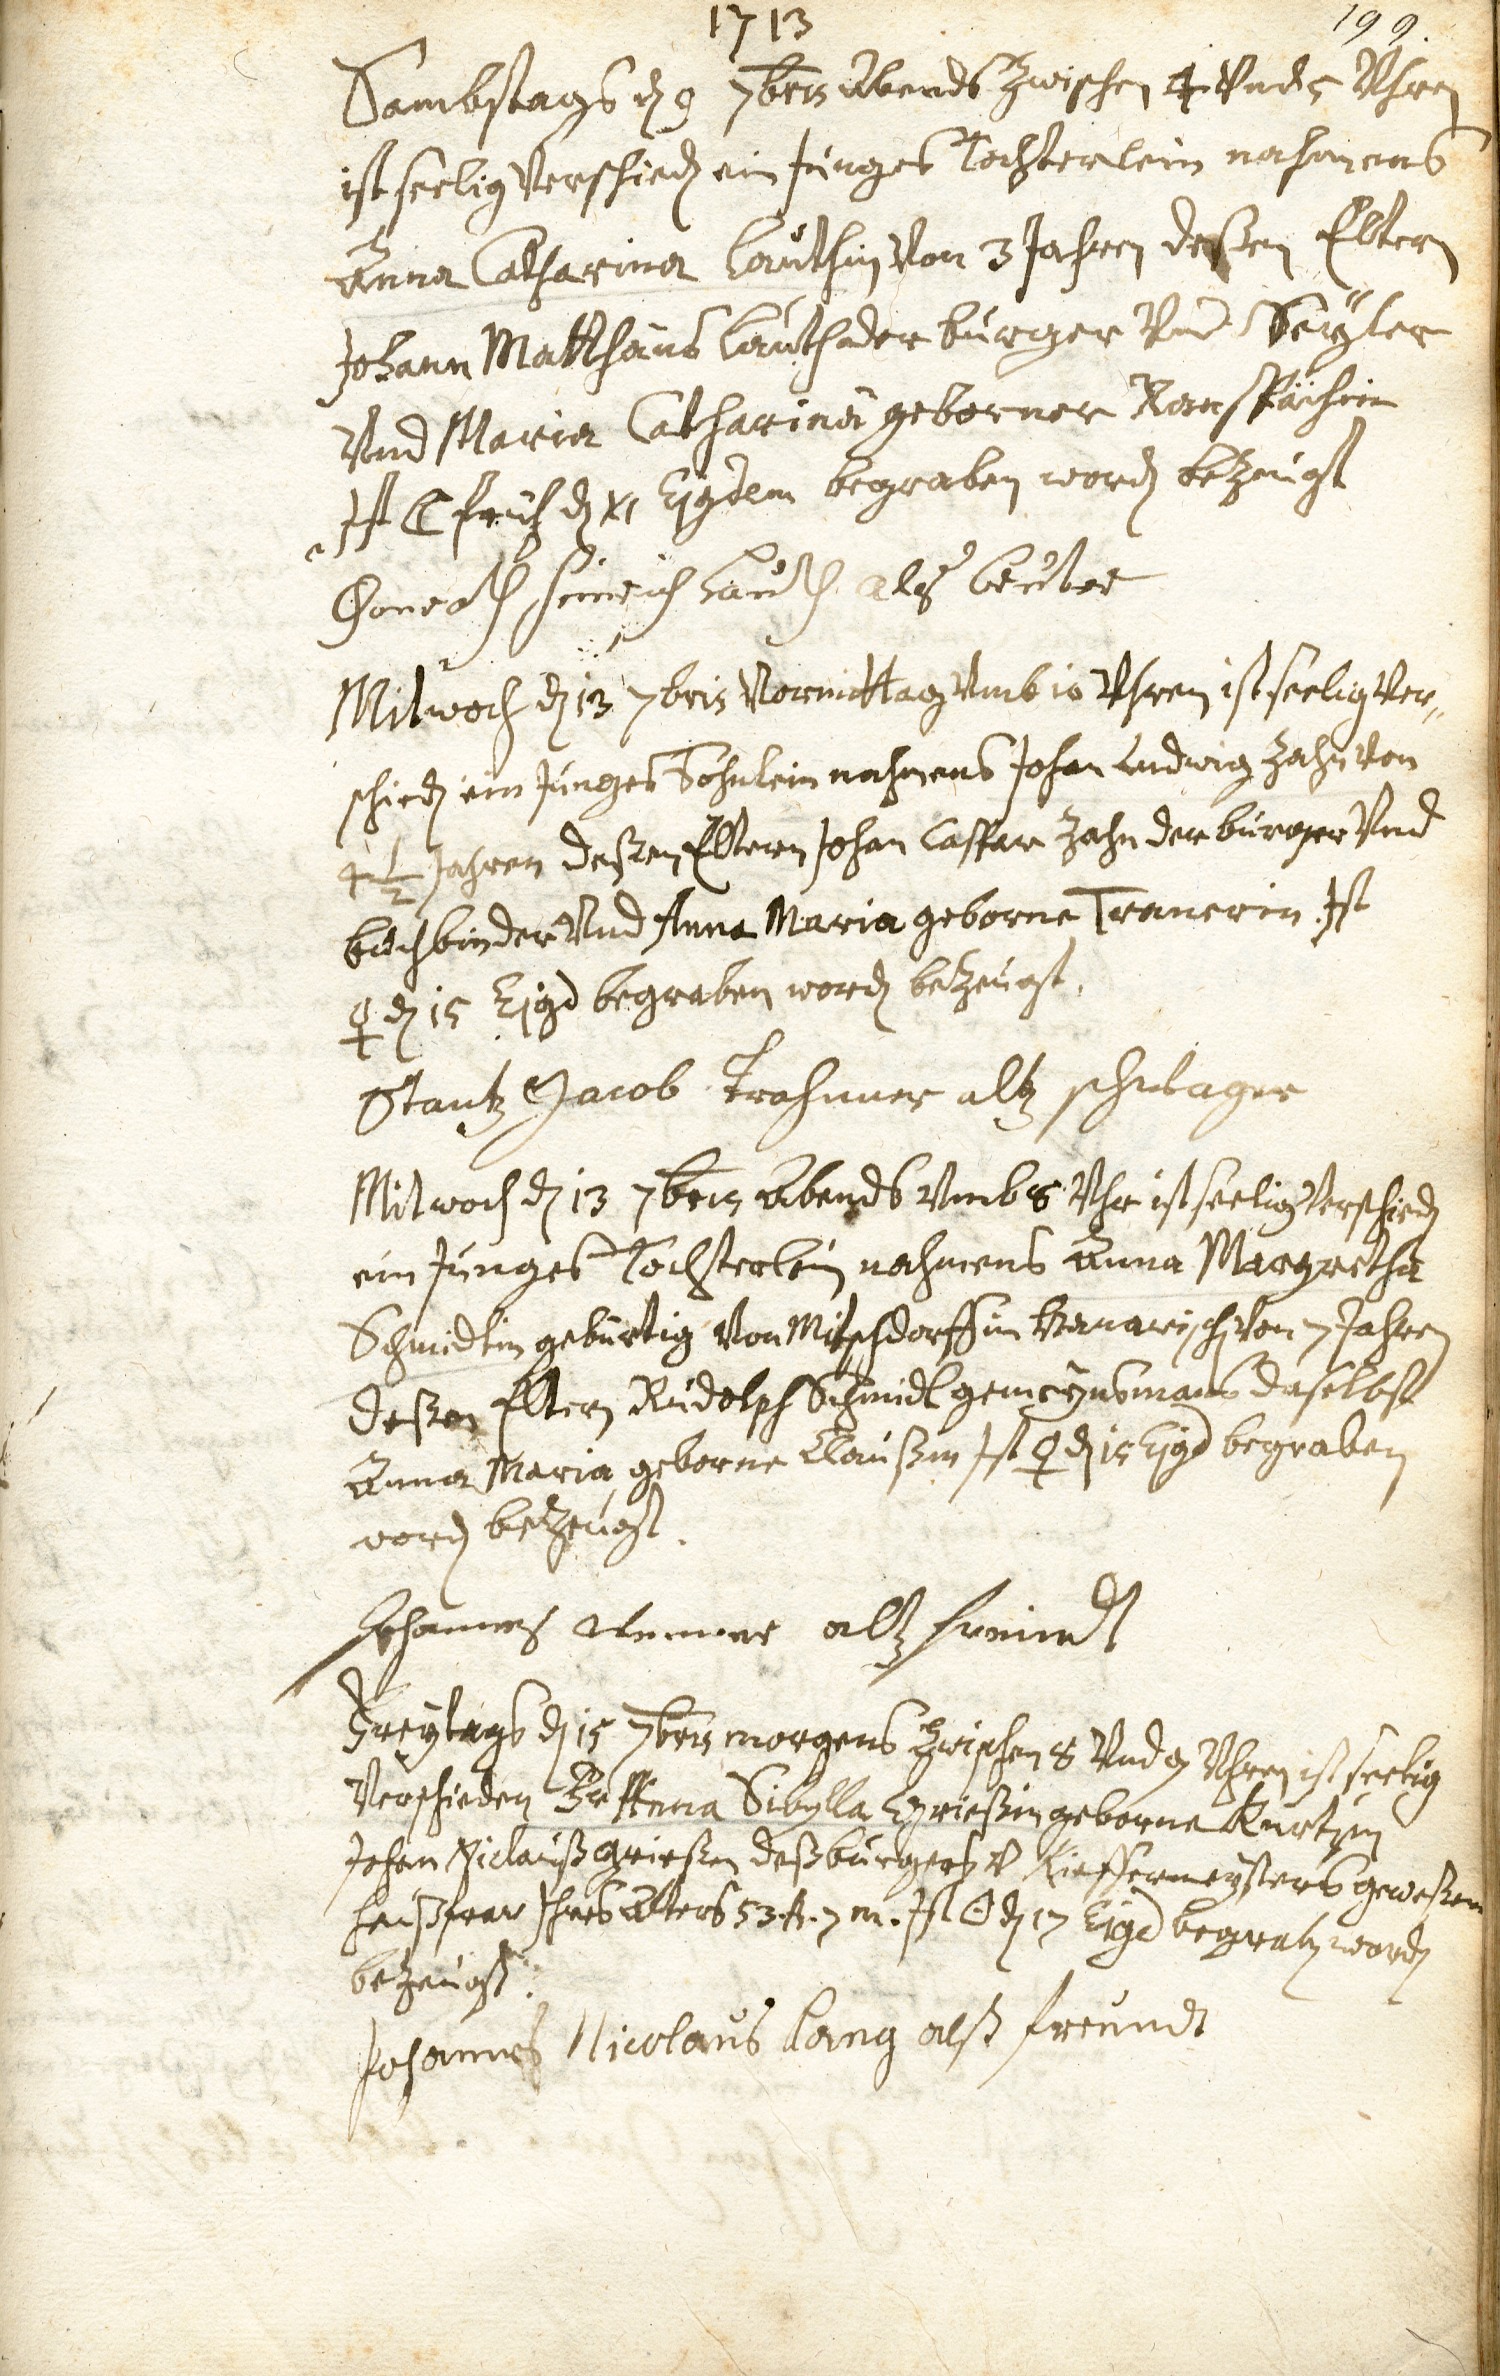 1713
199.
Sambstags dẽ 9 7bris Abends Zwischen 4 Vnd 5 Uhren
ist seelig Verschiedẽ ein Junges Tochterlein nahmens
Anna Catharina Lauthin Von 3 Jahren deßen Eltern
Johann Matthäus Lauth der burger Vnd Seyler
Vnd Maria Catharina geborner
Ist ☾ früh dẽ XI Ejusdem begraben wordẽ bezeugt
Conrath Heinrich Lauth als
Mitwoch dẽ 13 7bris Vormittag Vmb 10 Uhren ist seelig Ver„
schiedẽ ein Junges Söhnlein nahmens Johan Ludwig Zahn Von
4 1/2 Jahren deßen Eltern Johan Caspar Zahn der burger Vnd
buchbinder Vnd Anna Maria geborne Tranerin Ist
♀ dẽ 15 Ejusd begraben wordẽ bezeugt.
Jacob Trahnner alß schwager
Mitwoch dẽ 13 7bris Abends Vmb 8 Uhr ist seelig Verschiedẽ
ein Junges Tochterlein nahmens Anna Margretha
Schmidtin gebürtig Von Mitschdorff im Hanawisch Von 7 Jahren
deßen Eltern Rudolph Schmidt gemeynsmans daselbst
Anna Maria geborne Claußin Ist ♀ dẽ 15 Ejusd begraben
wordẽ bezeugt.
Johannes alß freindt
Freytags dẽ 15 7bris morgens Zwischen 8 Vnd 9 Uhren ist seelig
Verschieden Fr Anna Sibylla Grießin geborne Kurtzin
Johan Niclauß Grießen deß burgers V Kieffermeysters geweßen
haußfraw Ihres Alters 53 A. 7 m. Ist ☉ dẽ 17 Ejusd begrabẽ wordẽ
bezeugt.
Johannes Nicolaus Lang alß freundt